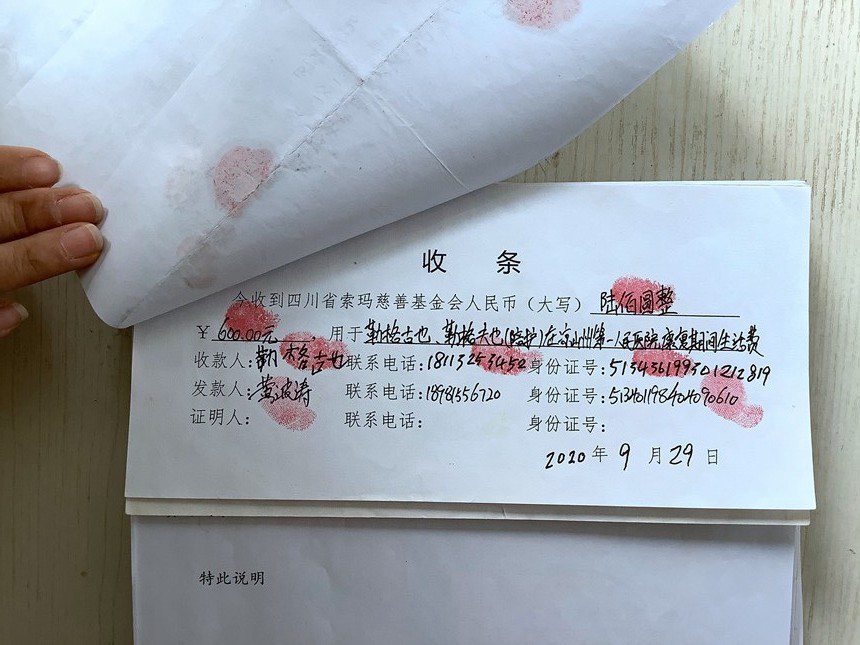 收 条
今收到四川省索玛慈善基金会人民币（大写） 陆佰圆整
￥ 600.00元 ，用于勒格吉也、勒格夫也(陪护)在凉山州第一人民医院康复期间生活费
收款人：勒格吉也 联系电话：18113253452 身份证号：513436199301212819
发款人：黄波涛 联系电话：18981556720 身份证号：513401198404090610
证明人： 联系电话： 身份证号：
2020 年 9 月 29 日
特此说明